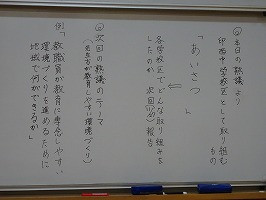 ◎本日の熟議より
印西中学校区として取り組む
もの
「あいさつ」
⇐
各学校区でどんな取り組みを
したのか 次回 報告
◎次回の熟議のテーマ
(先生方が教育しやすい環境づくり)
例「教職員が教育に専念しやすい
環境づくりを進めるために
地域で何ができるか」